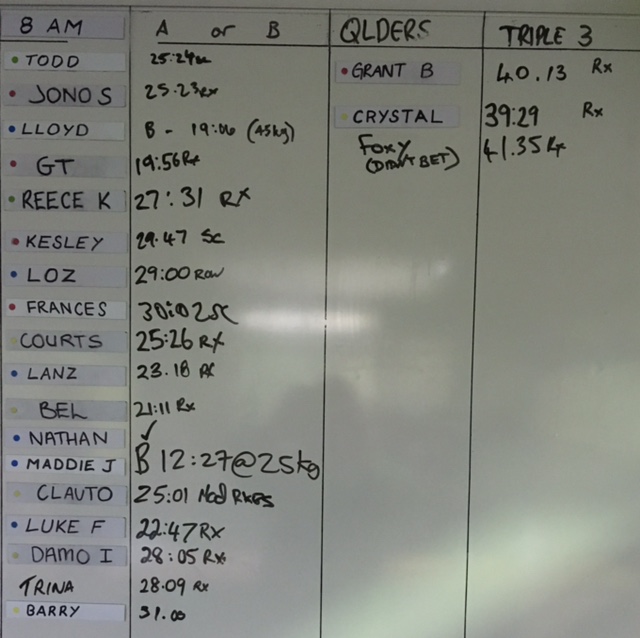 8 AM A or B QLDERS TRIPLE 3
TODD 25:24
JONO S 25:23 Rx
LLOYD B - 19:06 (45kg)
GT 19:56 Rx
REECE K 27:31 RX
KESLEY 29.47 SC
LOZ 29:00 ROW
FRANCES 30:02 SC
COURTS 25:26 RX
LANZ 23.18 RX
BEL 21:11 Rx
NATHAN ✓
MADDIE J B 12:27@25kg
CLAUTO 25:01 Mod
LUKE F 22:47 RX
DAMO I 28:05 Rx
TRINA 28.09 Rx
BARRY 31.00
GRANT B 40.13 Rx
CRYSTAL 39:29 Rx
FOXY 41.35
(DIDN'T BET)